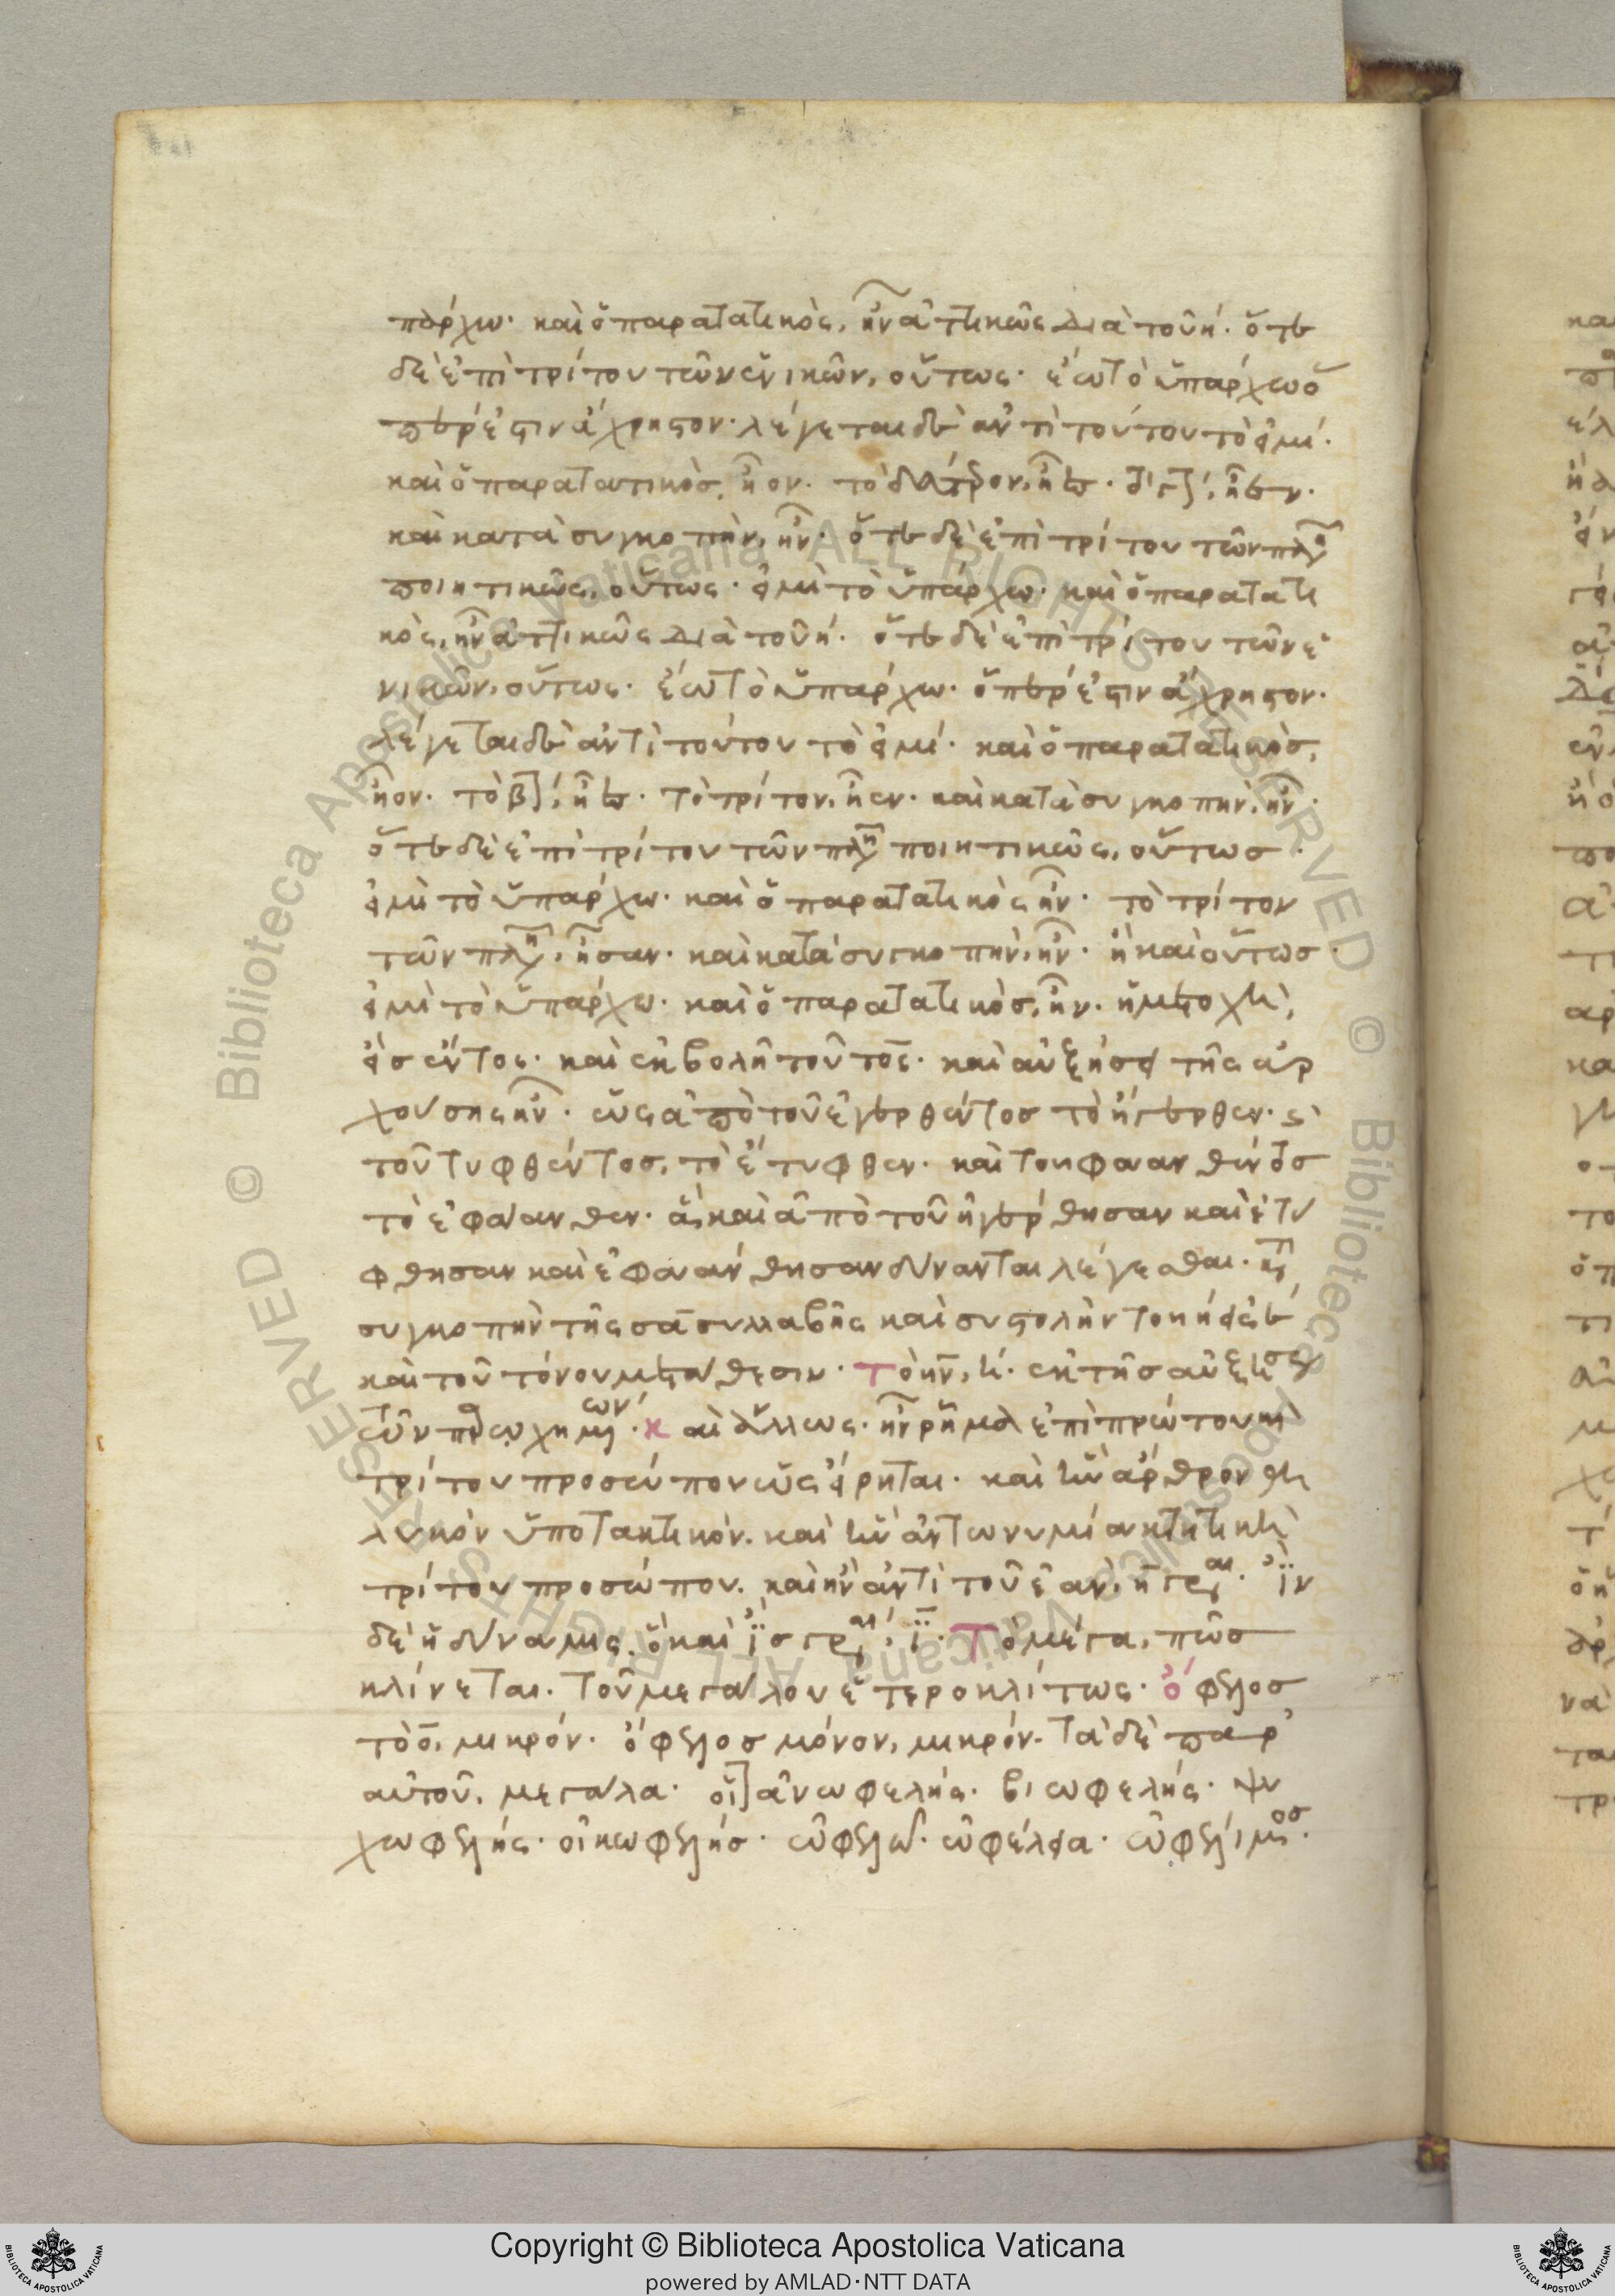 πάρχω· καὶ ὁ παρατατικὸς, ἦν ἀττικῶς διὰ τοῦ η. ὅτε
δὲ ἐπὶ τρίτου τῶν ἑνικῶν, οὕτως· ἔω τὸ ὑπάρχω ὅ
περ ἐστὶν ἄχρηστον· λέγεται δὲ ἀντὶ τούτου τὸ εἰμί·
καὶ ὁ παρατατικὸσ, ἦον· τὸ δεύτερον, ἦες· τὸ γ, ἦεν·
καὶ κατὰ συγκοπὴν, ἦν· ὅτε δὲ ἐπὶ τρίτου τῶν πλη
ποιητικῶς, οὕτως· εἰμὶ τὸ ὑπάρχω· καὶ ὁ παρατατι
κὸς, ἦν ἀττικῶς διὰ τοῦ η. ὅτε δὲ ἐπὶ τρίτου τῶν ἑ
νικῶν, οὕτως· ἔω τὸ ὑπάρχω· ὅπερ ἐστὶν ἄχρηστον·
λέγεται δὲ ἀντὶ τούτου τὸ εἰμί· καὶ ὁ παρατατικὸσ,
ἦον· τὸ β, ἦες· τὸ τρίτον, ἦεν· καὶ κατὰ συγκοπὴν, ἦν·
ὅτε δὲ ἐπὶ τρίτου τῶν πλη ποιητικῶς, οὕτωσ·
εἰμὶ τὸ ὑπάρχω· καὶ ὁ παρατατικὸς ἦν· τὸ τρίτον
τῶν πλη, ἦσαν· καὶ κατὰ συγκοπὴν, ἦν· ἢ καὶ οὕτωσ·
εἰμὶ τὸ ὑπάρχω· καὶ ὁ παρατατικὸσ, ἦν· ἡ μετοχὴ,
εἰσ έντος· καὶ ἐκβολῇ τοῦ τος· καὶ αὐξήσει τῆς ἀρ
χούσης ἦν· ὡς ἀπὸ τοῦ ἐγερθέντοσ τὸ ἤγερθεν· ϛ
τοῦ τυφθέντοσ, τὸ ἔτυφθεν· καὶ τοῦ φαανθέντοσ
τὸ ἐφάανθεν· ἃ καὶ ἀπὸ τοῦ ἠγέρθησαν καὶ ἐτύ
φθησαν καὶ ἐφαάνθησαν δύνανται λέγεσθαι· κτ
συγκοπὴν τῆς σα συλλαβῆς καὶ συστολὴν τοῦ η εἰς ε
καὶ τοῦ τόνου μετάθεσιν· τὸ ην, η. ἐκ τῆσ αὐξήσεως
τῶν παρωχημένων· καὶ ἄλλως· ἦν ῥῆμα ἐπὶ πρώτου καὶ
τρίτου προσώπου ὡς εἴρηται· καὶ ἣν ἄρθρον θη
λυκὸν ὑποτακτικόν. καὶ ἣν ἀντωνυμία κτητικὴ
τρίτου προσώπου. καὶ ἢν ἀντὶ τοῦ ἐὰν, η γράφεται. ἲν
δὲ ἡ δύναμις, ὃ καὶ ἲσ γράφεται, ι. Τὸ μέγα, πῶσ
κλίνεται. τοῦ μεγάλου ἑτεροκλίτως· ὄφελοσ
τὸ ο, μικρόν· ὄφελοσ μόνον, μικρόν. τὰ δὲ παρ
αὐτοῦ, μεγάλα· οἷον ἀνωφελής· βιωφελής· ψυ
χωφελής· οἰκωφελήσ· ὠφελῶ· ὠφέλεια· ὠφέλιμοσ.
Copyright © Biblioteca Apostolica Vaticana
powered by AMLAD·NTT DATA